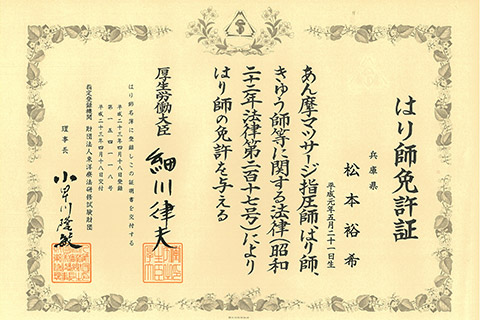 はり師免許証
兵庫県
松本裕希
平成元年五月二十一日生
あん摩マツサージ指圧師、はり師、
きゆう師等に関する法律(昭和
二十二年法律第二百十七号)により
はり師の免許を与える
厚生労働大臣 細川律夫
はり師名簿に登録しこの証明書を交付する
平成二十三年四月十八日登録
平成二十三年四月十八日交付
指定登録機関 財団法人東洋療法研修試験財団
理事長